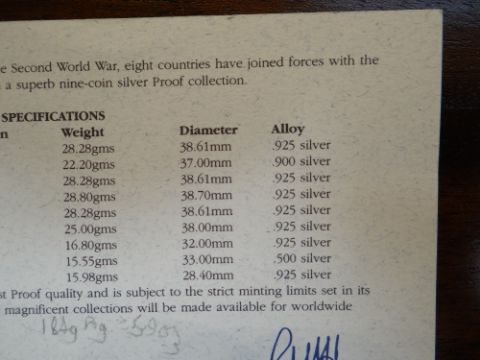 e Second World War, eight countries have joined forces with the
a superb nine-coin silver Proof collection.
SPECIFICATIONS
n Weight Diameter Alloy
28.28gms 38.61mm .925 silver
22.20gms 37.00mm .900 silver
28.28gms 38.61mm .925 silver
28.80gms 38.70mm .925 silver
28.28gms 38.61mm .925 silver
25.00gms 38.00mm .925 silver
16.80gms 32.00mm .925 silver
15.55gms 33.00mm .500 silver
15.98gms 28.40mm .925 silver
st Proof quality and is subject to the strict minting limits set in its
magnificent collections will be made available for worldwide